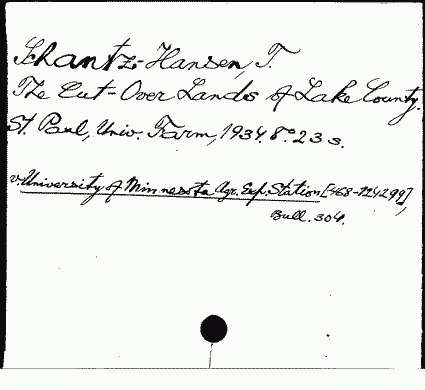 Schantz-Hansen, T.
The Cut-Over Lands of Lake County.
St. Paul, Univ. Farm, 1934. 8° 23 s.
v. University of Minnesota Agr. Exp. Station [468-124299],
Bull. 304.